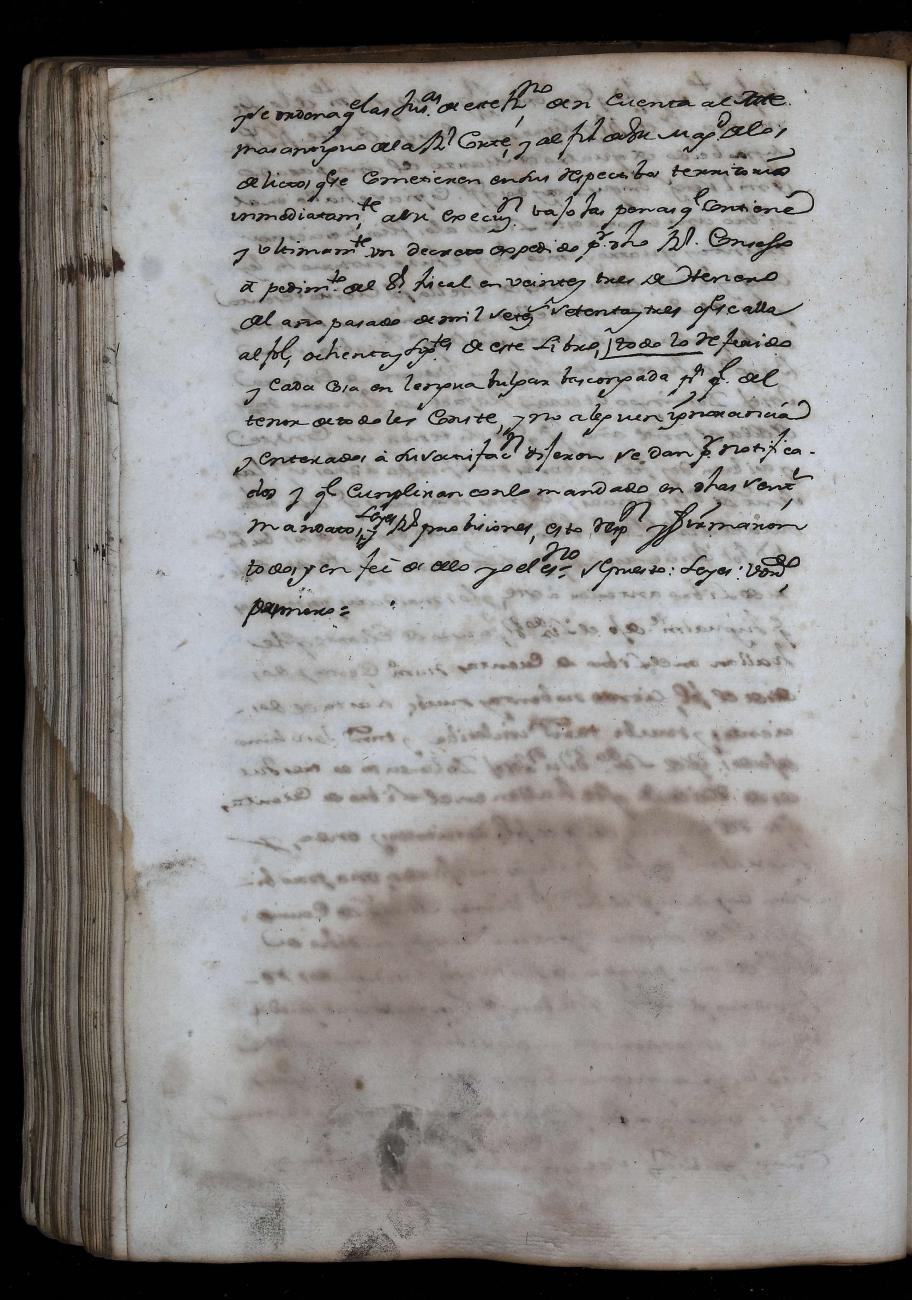 y se ordena q̃ las Jus.as de este R.no den Cuenta al Alcde.
mas antiguo de la R.l Corte, y al fis.l de su Mag.d de los
delictos q̃ se Cometieren en sus respectibos territorios
inmediatam.te a su execuz.n bajo las penas q̃ Contiene
y ultimam.te un decreto expedido p.r dho R.l Consejo
a pedim.to del S.r fiscal en veinte y tres de Henero
del año pasado de mil set.s setenta y tres q̃ se alla
al fol. ochenta y de este Libro, todo lo referido
y Cada Cosa en lengua bulgar bascongada p.a q̃ del
tenor de todo les Conste, y no aleguen ignorancia
y enterados a su satisfac.n dijeron se dan p.r notifica-
dos y q̃ Cumpliran con lo mandado en dhas Sent.s
mandatos, Leyes y R.s probisiones, esto resp.n y firmaron
todos y en feé de ello yo el es.no =
primero =